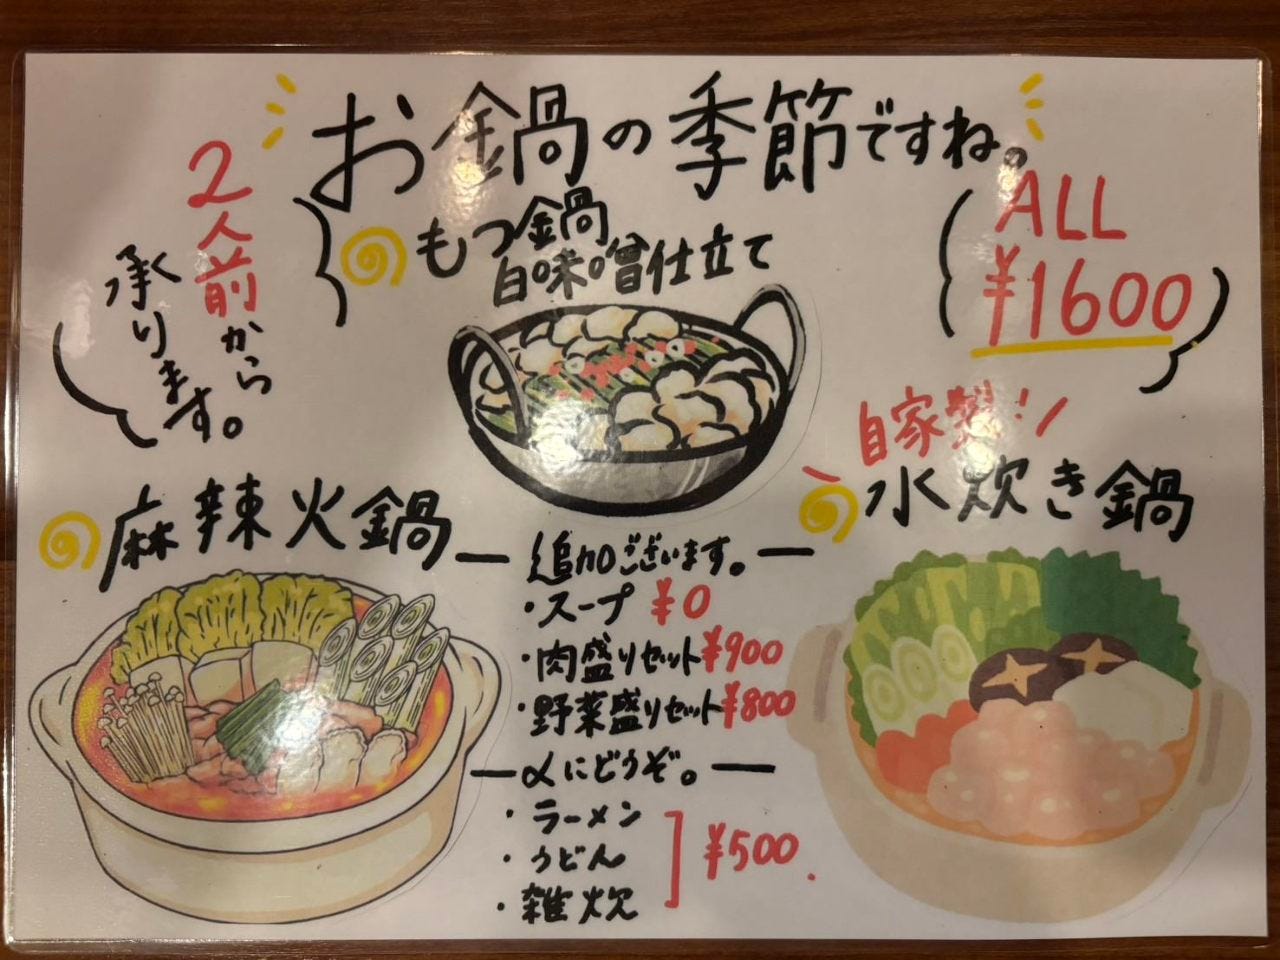 お鍋の季節ですね。
2人前から
承ります。
ALL
¥1600
もつ鍋
白味噌仕立て
自家製!!
水炊き鍋
麻辣火鍋
追加ございます。
・スープ ¥0
・肉盛りセット ¥900
・野菜盛りセット ¥800
〆にどうぞ。
・ラーメン
・うどん
・雑炊
¥500